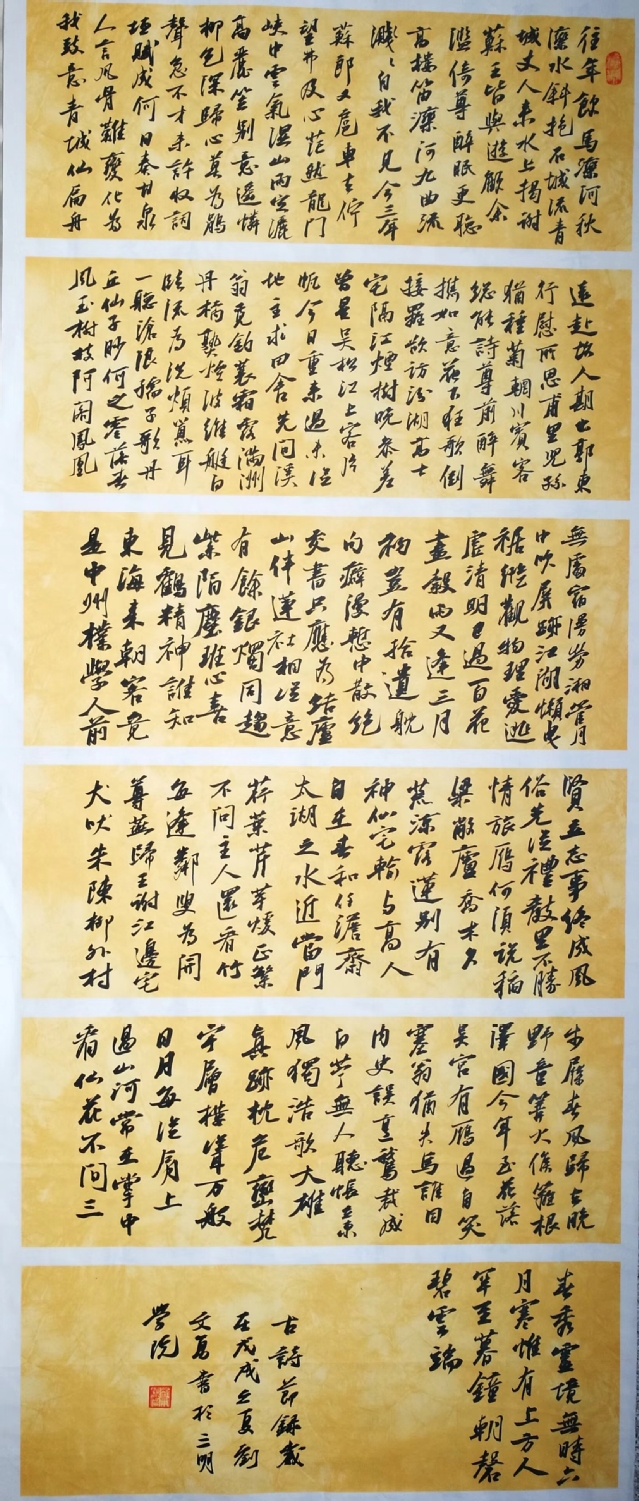 往年飲馬灤河秋
灤水斜抱石城流青
城丈人來水上揭謝
蘇王皆與遊顧余
濫倚尊醉眠更聽
高樓笛灤河九曲流
濺濺自我不見今三年
蘇郎又扈車去佇
望弗及心茫然龍門
峽中雲氣濕山雨空灑
高麗笠別意遙憐
柳色深歸心莫為鵑
聲急不才未許收詞
垣賦成何日奏甘泉
人言風骨難變化為
我致意青城仙扁舟
遠赴故人期出郭東
行慰所思甫里兒孫
猶種菊輞川賓客
總能詩尊前醉舞
攜如意花下狂歌倒
接羅欲訪汾湖高士
宅隔江煙樹晚參差
曾是吳松江上客片
帆今日重來過未從
地主求田舍先問溪
翁覓釣蓑霜露滿洲
丹橘熟煙波維艇白
臨流為洗煩囂耳
一聽滄浪孺子歌丹
丘仙子眇何之零落春
風玉樹枝阿閣鳳凰
無處宿勞湘管月
中吹屏跡江湖懶曳
裾縱觀物理愛逃
虛清明已過百花
盡穀雨又逢三月
初豈有拾遺耽
句癖漫慙中散絕
交書只應為結廬
山伴蓮社相從意
有餘銀燭同趨
紫陌塵班心喜
見鶴精神誰知
東海來朝客竟
是中州樸學人前
賢立志事終成風
俗先從禮教里不勝
情旅雁何須說稻
梁敝廬喬木久
荒涼露蓮別有
神仙宅輸與高人
自在春和澹齋
太湖之水近當門
荇葉芹芽煖正繁
不問主人還看竹
每逢鄰叟為開
尊燕歸王謝江邊宅
犬吠朱陳柳外村
步屧春風歸去晚
野童篝火候籬根
澤國今年玉花落
吳宮有雁過自笑
塞翁猶失馬誰因
內史誤烹鶩裁成
白苧無人聽悵立東
風獨浩歌大雄
無跡枕危巒梵
宇層樓聳萬般
日月每從肩上
過山河常在掌中
看仙花不問三
春秀靈境無時六
月寒惟有上方人
罕至暮鐘朝磬
碧雲端
古詩節錄歲
在戊戌之夏劉
文勇書於三明
學院